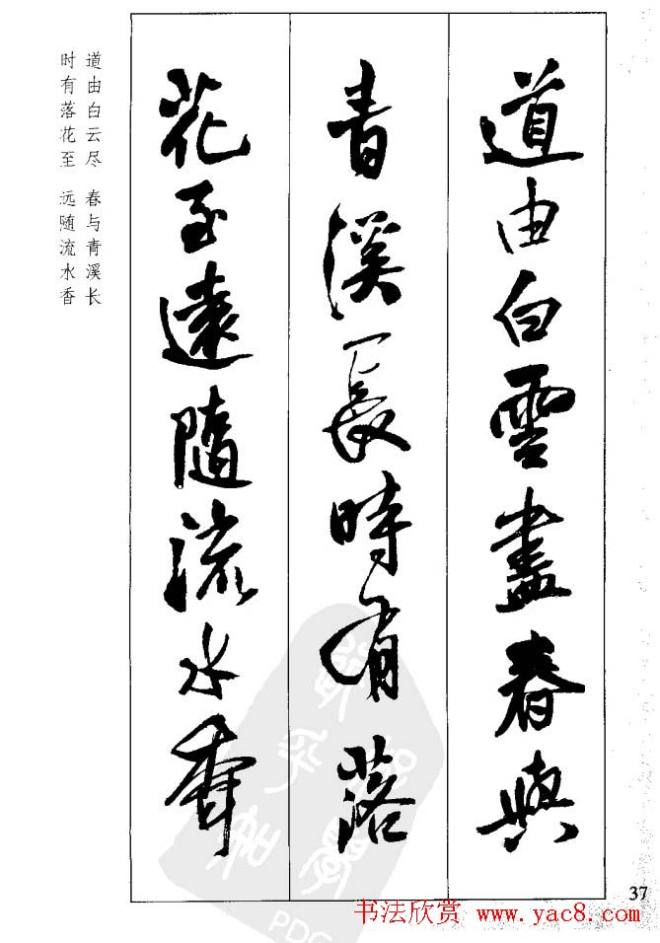 道由白雲盡春與
青溪長時有落
花至遠隨流水香
道由白云尽 春与青溪长
时有落花至 远随流水香
37
书法欣赏 www.yac8.com
PDG